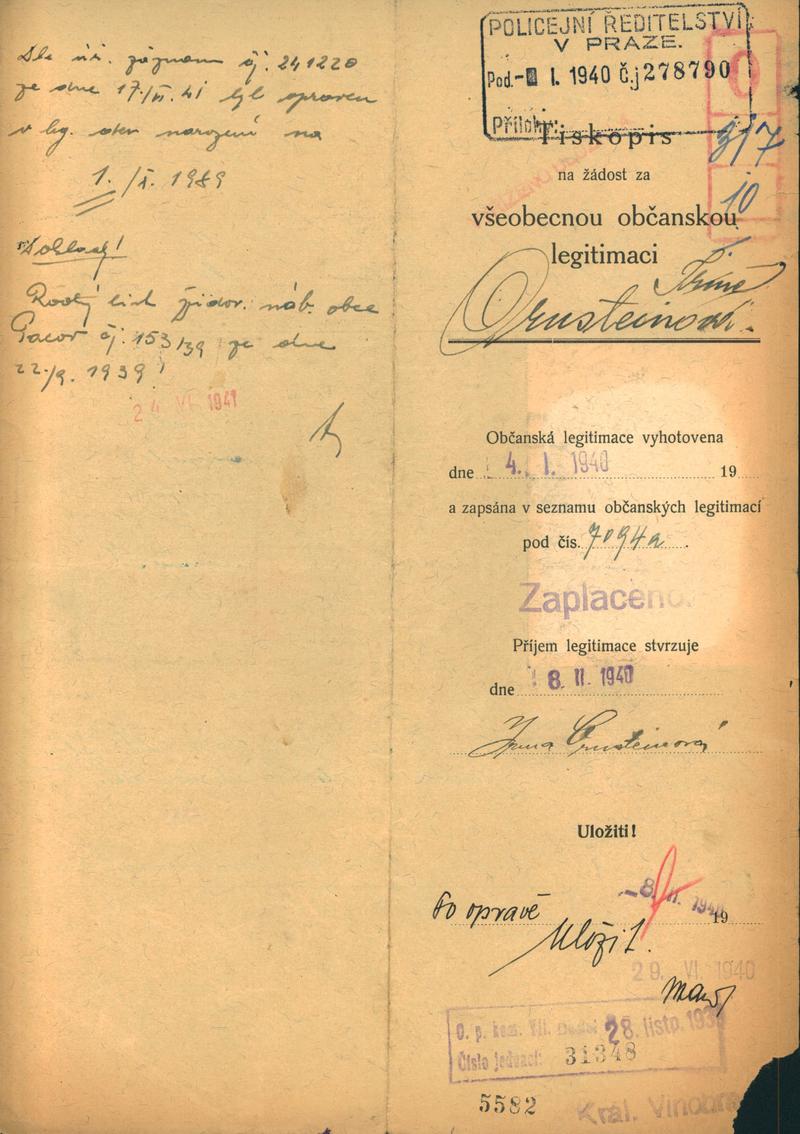 Dle úř. záznamu čj. 241220
ze dne 17/VI. 41 byl opraven
v leg. den narození na
1./I. 1989
Doklad!
Rodný list židov. náb. obce
Pacov čj. 153/39 ze dne
22./9. 1939!
24 VI 1941
POLICEJNÍ ŘEDITELSTVÍ
V PRAZE.
Pod.- I. 1940 Č.j 278790
Přílohy:
Tiskopis
317
na žádost za
10
všeobecnou občanskou
legitimaci
Ornsteinová.
Občanská legitimace vyhotovena
dne 4. I. 1940 19
a zapsána v seznamu občanských legitimací
pod čís. 7094a.
Zaplaceno.
Příjem legitimace stvrzuje
dne 8. II. 1940
Irma Ornsteinová
Uložiti!
-8. II. 1940 19
Po opravě
uložit.
29. VI. 1940
O. p. kom. VII. 28. listp. 193
Číslo jednací: 31348
5582 Král. Vinohra